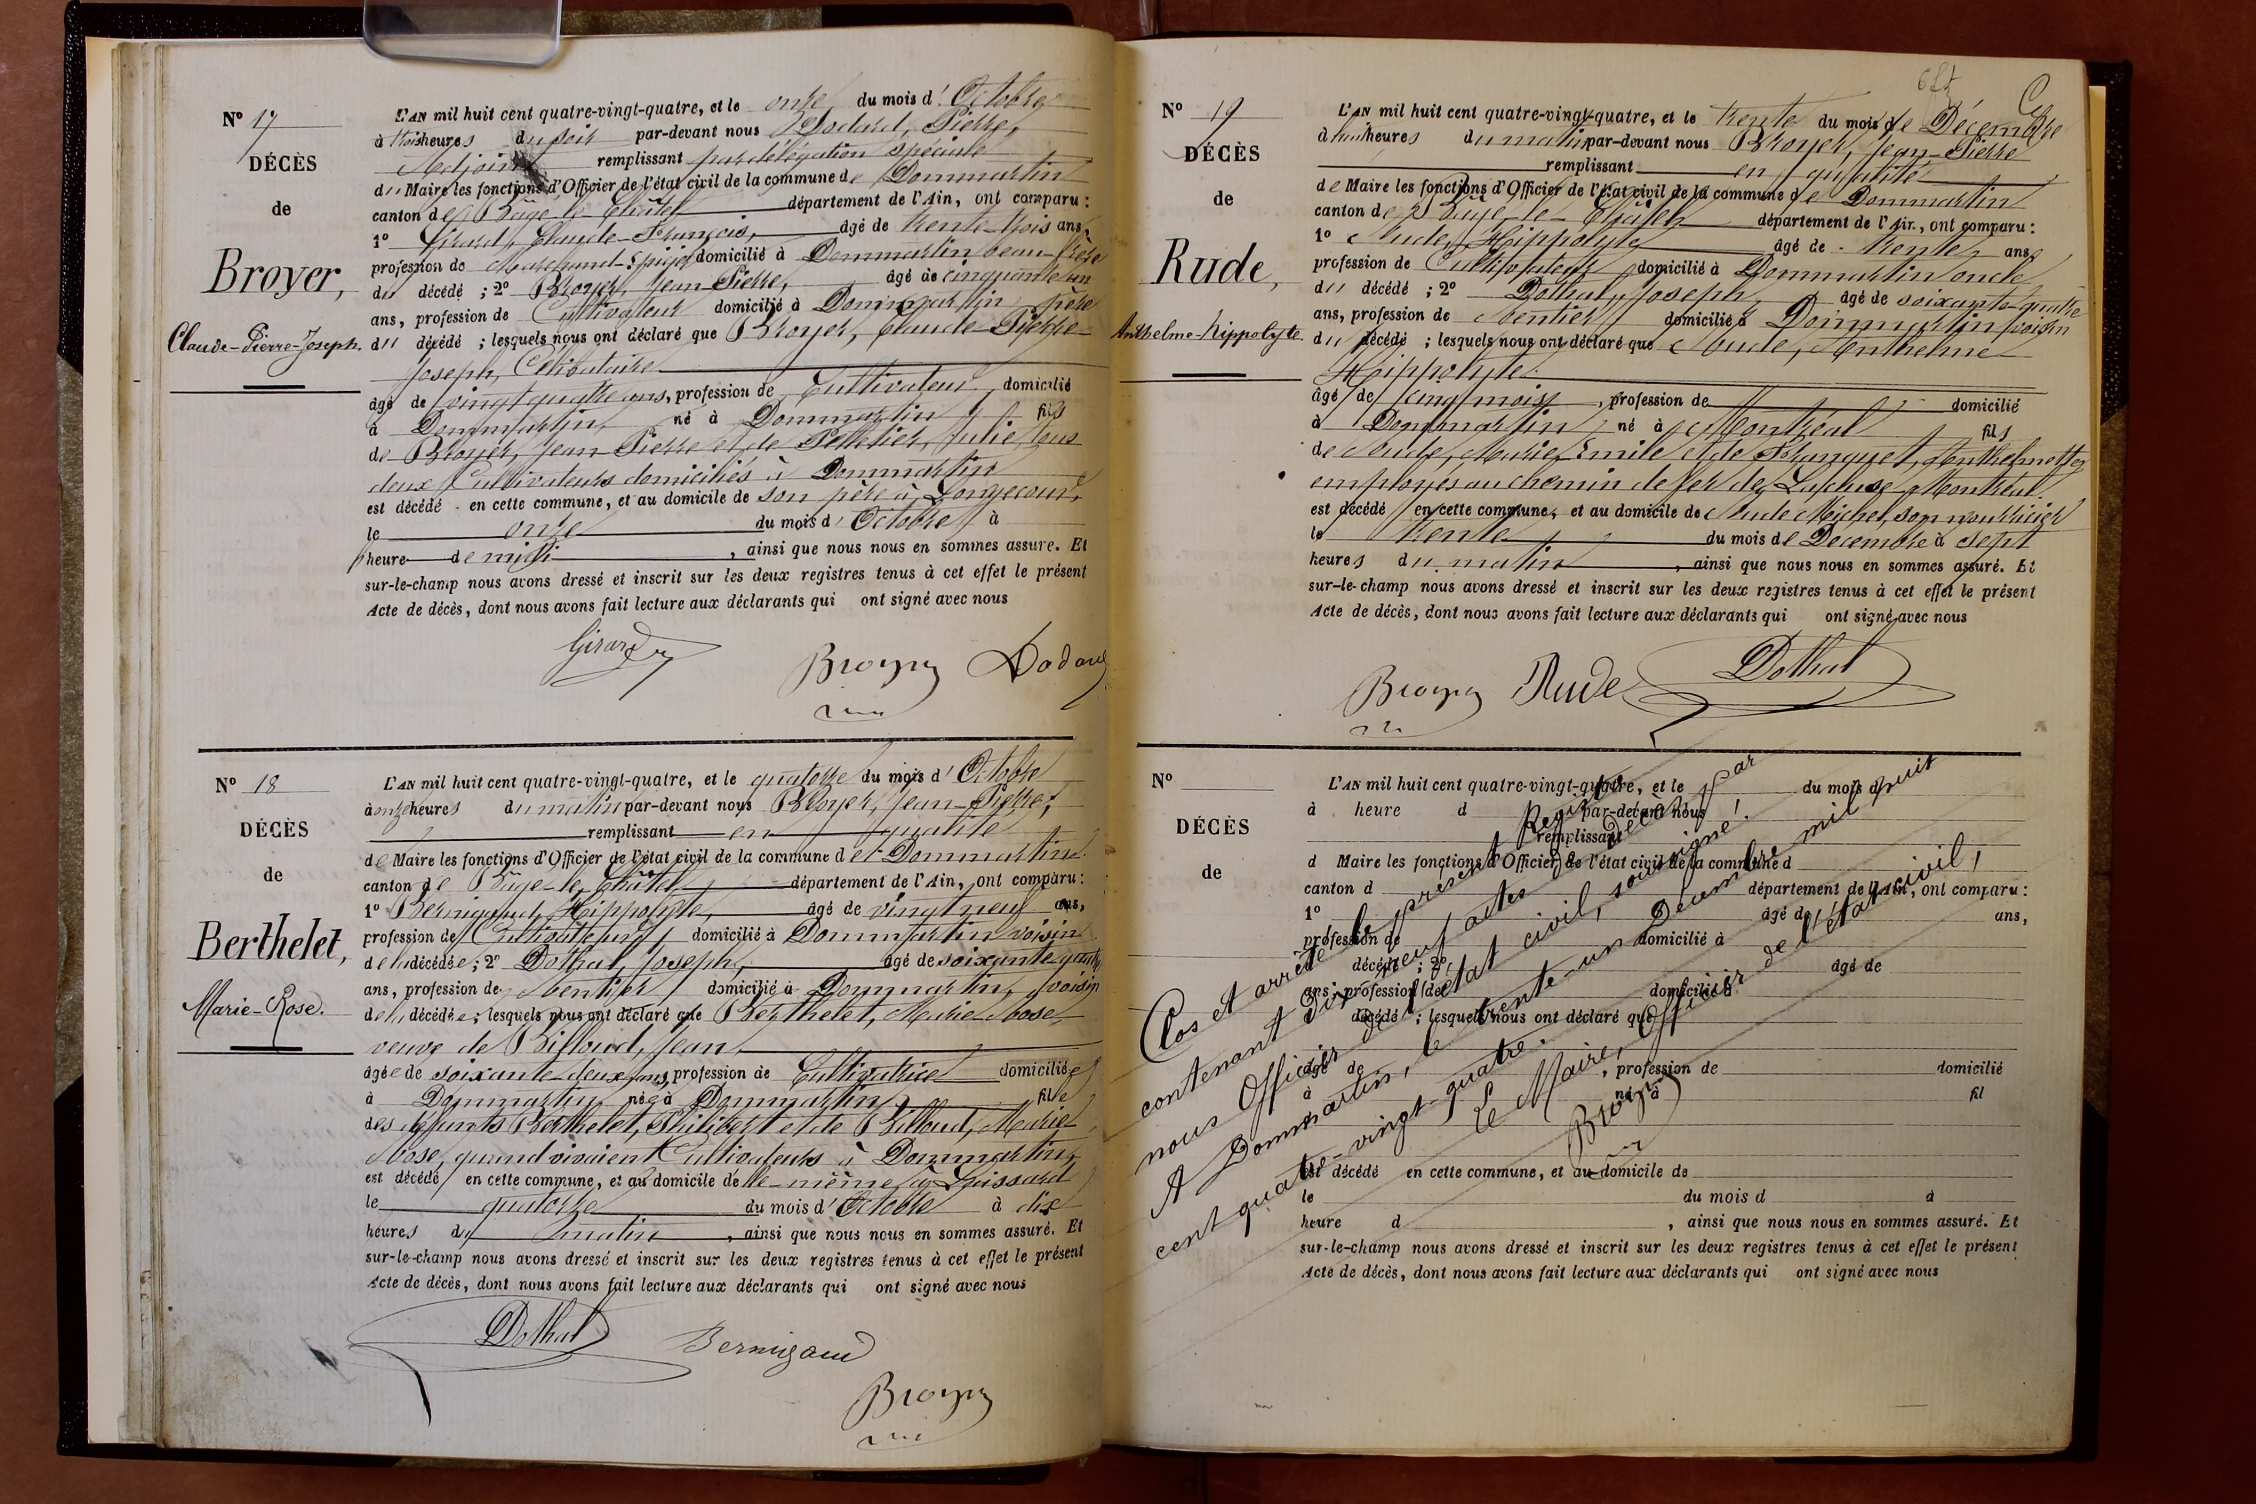 N° 17
DÉCÈS
de
Broyer,
Claude-Pierre-Joseph.
L'AN mil huit cent quatre-vingt-quatre, et le onze du mois d'Octobre
à trois heures du soir par-devant nous Dodard, Pierre,
Adjoint remplissant par délégation spéciale
du Maire les fonctions d'Officier de l'état civil de la commune de Dommartin
canton de Bâgé-le-Châtel département de l'Ain, ont comparu :
1° Girard, Claude-François, âgé de trente-trois ans,
profession de Marchand-Epicier domicilié à Dommartin beau-frère
du décédé ; 2° Broyer, Jean-Pierre, âgé de cinquante un
ans, profession de Cultivateur domicilié à Dommartin père
du décédé ; lesquels nous ont déclaré que Broyer, Claude-Pierre-
Joseph, Célibataire
âgé de vingt quatre ans, profession de Cultivateur, domicilié
à Dommartin né à Dommartin fils
de Broyer, Jean Pierre et de Pelletier, Julie, tous
deux Cultivateurs domiciliés à Dommartin
est décédé en cette commune, et au domicile de son père à Longecour,
le onze du mois d'Octobre à
heure de midi, ainsi que nous nous en sommes assuré. Et
sur-le-champ nous avons dressé et inscrit sur les deux registres tenus à cet effet le présent
Acte de décès, dont nous avons fait lecture aux déclarants qui ont signé avec nous
Girard Broyer Dodard
N° 18
DÉCÈS
de
Berthelet,
Marie-Rose.
L'AN mil huit cent quatre-vingt-quatre, et le quatorze du mois d'Octobre
à onze heures du matin par-devant nous Broyer, Jean-Pierre,
remplissant en qualité
de Maire les fonctions d'Officier de l'état civil de la commune de Dommartin
canton de Bâgé-le-Châtel département de l'Ain, ont comparu :
1° Bernigaud, Hippolyte, âgé de vingt neuf ans,
profession de Cultivateur domicilié à Dommartin voisin
de la décédée ; 2° Dothal, Joseph, âgé de soixante quatre
ans, profession de Rentier domicilié à Dommartin, voisin
de la décédée ; lesquels nous ont déclaré que Berthelet, Marie Rose,
veuve de Billoud, Jean,
âgée de soixante-deux ans, profession de Cultivatrice domiciliée
à Dommartin née à Dommartin fille
des défunts Berthelet, Philibert et de Billoud, Marie
Rose, quand vivaient Cultivateurs à Dommartin,
est décédé en cette commune, et au domicile d'elle-même à
le quatorze du mois d'Octobre à dix
heures du matin, ainsi que nous nous en sommes assuré. Et
sur-le-champ nous avons dressé et inscrit sur les deux registres tenus à cet effet le présent
Acte de décès, dont nous avons fait lecture aux déclarants qui ont signé avec nous
Dothal Bernigaud
Broyer
N° 19
DÉCÈS
de
Rude,
Anthelme-Hippolyte.
L'AN mil huit cent quatre-vingt-quatre, et le trente du mois de Décembre
à huit heures du matin par-devant nous Broyer, Jean-Pierre
remplissant en qualité
de Maire les fonctions d'Officier de l'état civil de la commune de Dommartin
canton de Bâgé-le-Châtel département de l'Ain, ont comparu :
1° Rude, Hippolyte âgé de trente ans,
profession de Cultivateur domicilié à Dommartin oncle
du décédé ; 2° Dothal, Joseph, âgé de soixante-quatre
ans, profession de Rentier domicilié à Dommartin, voisin
du décédé ; lesquels nous ont déclaré que Rude, Anthelme
Hippolyte
âgé de cinq mois, profession de domicilié
à Dommartin né à Montréal fils
de Rude, Marie Emile et de Franquet, Anthelmette,
employés au chemin de fer de Lacluse Montréal.
est décédé en cette commune, et au domicile de Rude Michel, son nourricier
le trente du mois de Décembre à sept
heures du matin, ainsi que nous nous en sommes assuré. Et
sur-le-champ nous avons dressé et inscrit sur les deux registres tenus à cet effet le présent
Acte de décès, dont nous avons fait lecture aux déclarants qui ont signé avec nous
Broyer Rude Dothal
N°
DÉCÈS
de
L'AN mil huit cent quatre-vingt-quatre, et le du mois d
à heure d par-devant nous
remplissant
d Maire les fonctions d'Officier de l'état civil de la commune d
canton d département de l'Ain, ont comparu :
1° âgé de ans,
profession de domicilié à
d décédé ; 2° âgé de
ans, profession de domicilié à
d décédé ; lesquels nous ont déclaré que
âgé de , profession de domicilié
à né à fil
est décédé en cette commune, et au domicile de
le du mois d à
heure d , ainsi que nous nous en sommes assuré. Et
sur-le-champ nous avons dressé et inscrit sur les deux registres tenus à cet effet le présent
Acte de décès, dont nous avons fait lecture aux déclarants qui ont signé avec nous
Clos et arrêté le présent Registre
contenant dix neuf actes de Décès par
nous Officier de l'état civil, soussigné.
A Dommartin, le trente-un Décembre mil huit
cent quatre-vingt-quatre.
Le Maire, Officier de l'état civil,
Broyer